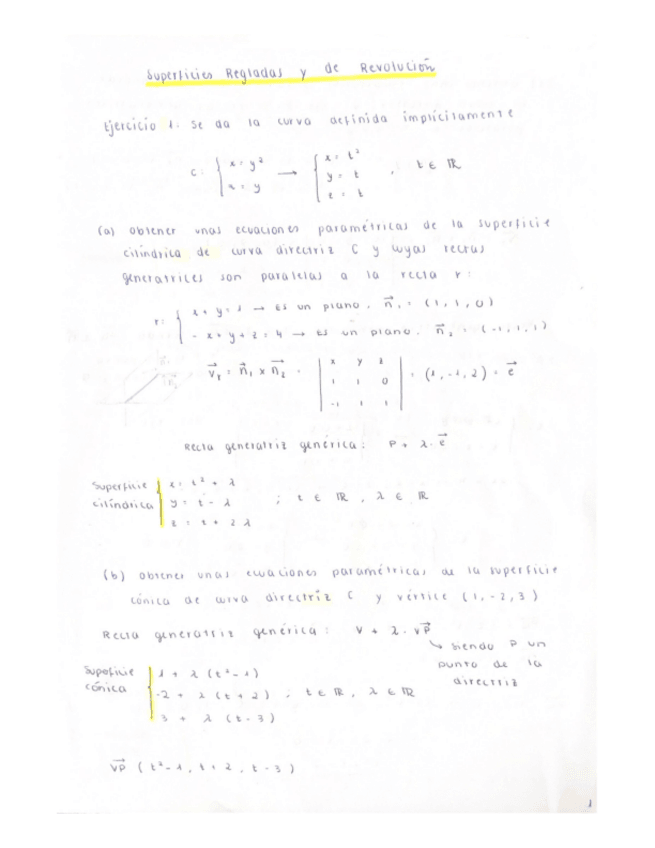 Superficies Regladas y de Revolución
Ejercicio 1: Se da la curva definida implícitamente
C: { x = y² ; z = y → { x = t² ; y = t ; z = t , t ∈ ℝ
(a) obtener unas ecuaciones paramétricas de la superficie
cilíndrica de curva directriz C y cuyas rectas
generatrices son paralelas a la recta r:
r: { x + y = 1 → Es un plano. n⃗₁ = (1, 1, 0)
- x + y + z = 4 → Es un plano. n⃗₂ = (-1, 1, 1)
v⃗ᵣ = n⃗₁ x n⃗₂ = | x y z ; 1 1 0 ; -1 1 1 | = (1, -1, 2) = e⃗
Recta generatriz genérica: P + λ · e⃗
Superficie cilíndrica { x = t² + λ
y = t - λ ; t ∈ ℝ, λ ∈ ℝ
z = t + 2λ
(b) obtener unas ecuaciones paramétricas de la superficie
cónica de curva directriz C y vértice (1, -2, 3)
Recta generatriz genérica: V + λ · VP⃗
↳ siendo P un
punto de la
directriz
Supeficie cónica { 1 + λ (t² - 1)
-2 + λ (t + 2) ; t ∈ ℝ, λ ∈ ℝ
3 + λ (t - 3)
VP⃗ (t² - 1, t + 2, t - 3)
1